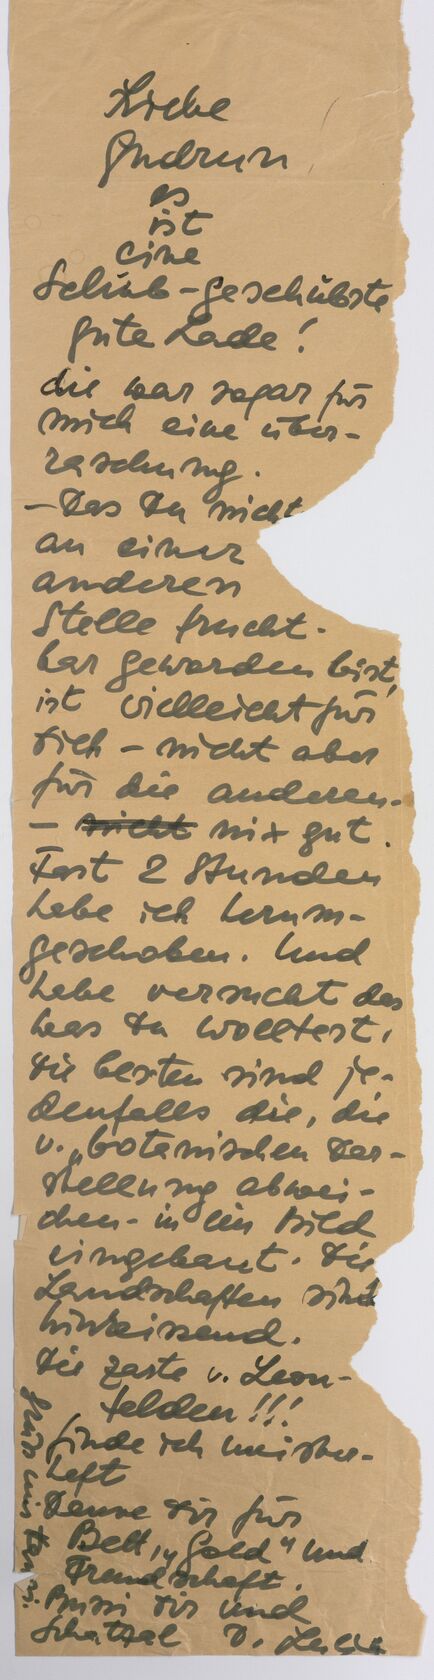 Liebe
Gudrun
es
ist
eine
Schub-geschübste
gute Lade!
die war sogar für
mich eine über-
raschung.
– Das Du nicht
an einer
anderen
Stelle frucht-
bar geworden bist,
ist vielleicht für
Dich – nicht aber
für die anderen-
– nicht nix gut.
Fast 2 Stunden
habe ich herum-
geschoben. Und
habe versucht das
was Du wolltest,
Die besten sind je-
denfalls die, die
v. „botanischen Dar-
stellung abwei-
chen- in ein Bild
eingebaut. Die
Landschaften sind
hinreissend.
Die zarte v. Leon-
felden!!!
finde ich meister-
haft
Danke Dir für
Bett, „Gold" und
Freundschaft.
Bussi Dir und
Schatzal v.
Grüss mir